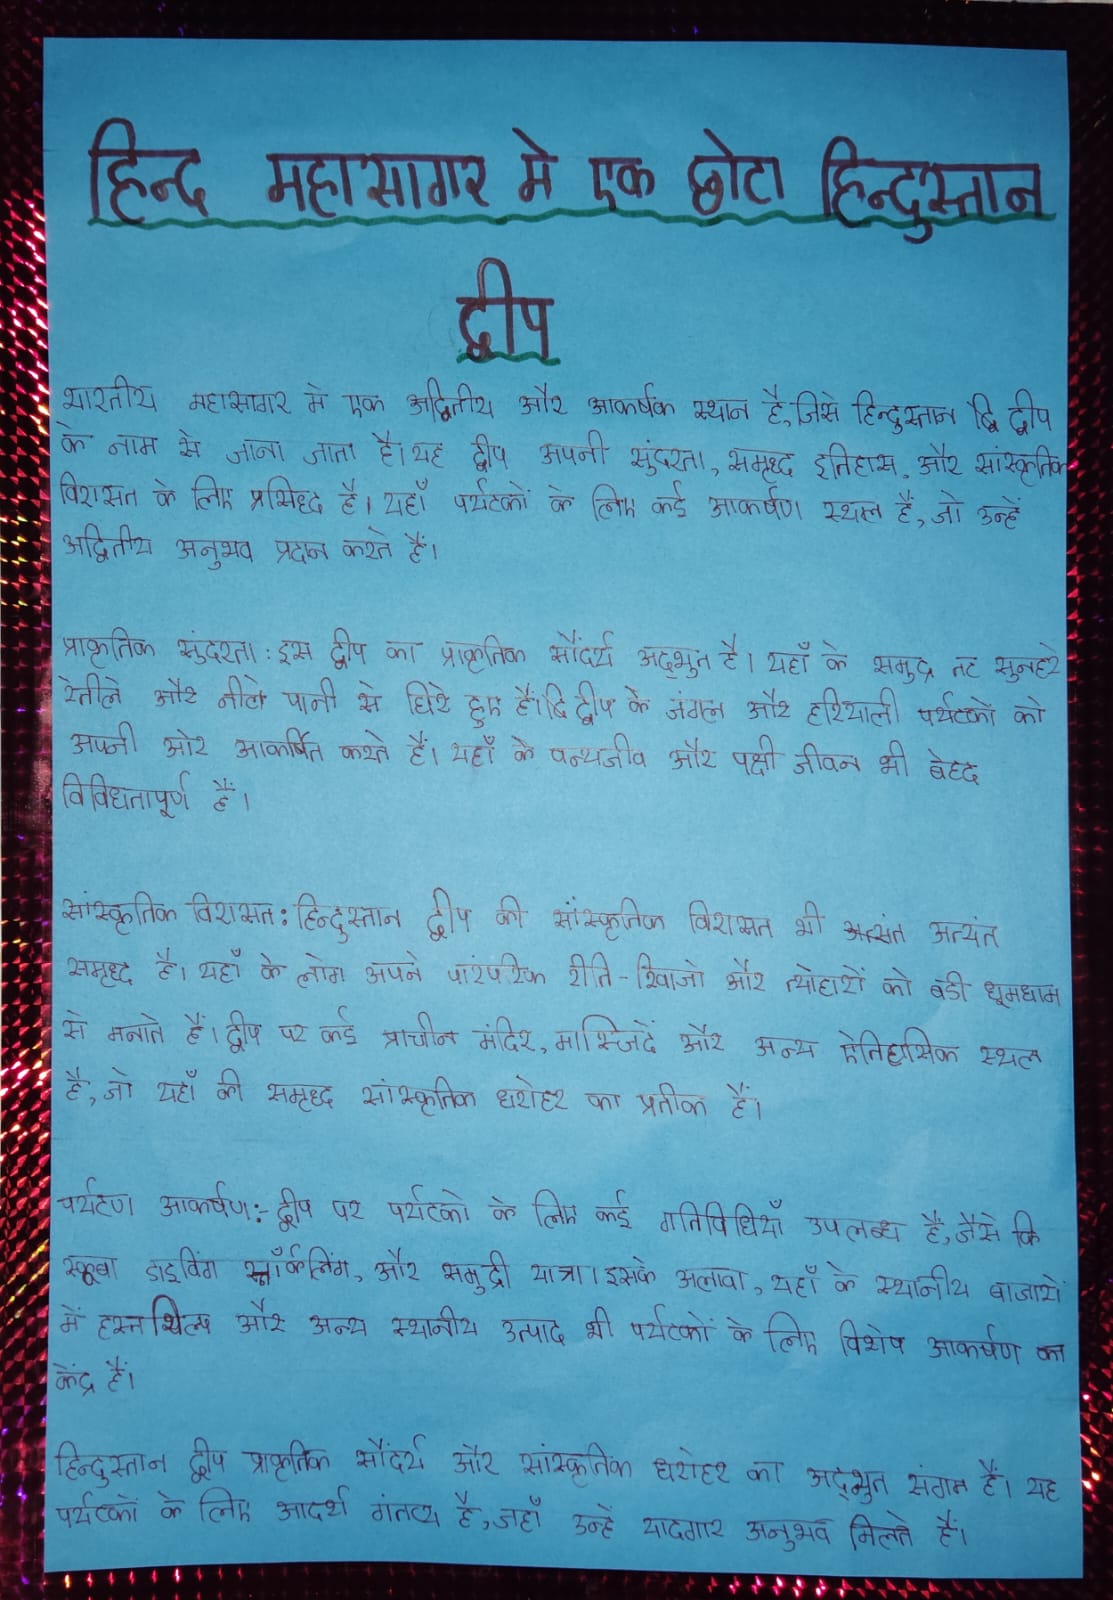 हिन्द महासागर मे एक छोटा हिन्दुस्तान
द्वीप
भारतीय महासागर मे एक अद्वितीय और आकर्षक स्थान है, जिसे हिन्दुस्तान द्वि द्वीप
के नाम से जाना जाता है। यह द्वीप अपनी सुंदरता, समृध्द इतिहास, और सांस्कृतिक
विरासत के लिए प्रसिध्द है। यहाँ पर्यटकों के लिए कई आकर्षण स्थल हैं, जो उन्हें
अद्वितीय अनुभव प्रदान करते हैं।
प्राकृतिक सुंदरता: इस द्वीप का प्राकृतिक सौंदर्य अद्भुत है। यहाँ के समुद्र तट सुनहरे
रेतीले और नीले पानी से घिरे हुए हैं। द्वि द्वीप के जंगल और हरियाली पर्यटकों को
अपनी ओर आकर्षित करते हैं। यहाँ के वन्यजीव और पक्षी जीवन भी बेहद
विविधतापूर्ण हैं।
सांस्कृतिक विरासत: हिन्दुस्तान द्वीप की सांस्कृतिक विरासत भी अत्यंत
समृध्द है। यहाँ के लोग अपने पारंपरिक रीति-रिवाजो और त्योहारों को बडी धूमधाम
से मनाते हैं। द्वीप पर कई प्राचीन मंदिर, मास्जिदें और अन्य ऐतिहासिक स्थल
है, जो यहाँ की समृध्द सांस्कृतिक धरोहर का प्रतीक हैं।
पर्यटण आकर्षण:- द्वीप पर पर्यटको के लिए कई गतिविधियाँ उपलब्ध हैं, जैसे कि
स्कूबा डाइविंग स्नॉर्कलिंग, और समुद्री यात्रा। इसके अलावा, यहाँ के स्थानीय बाजारों
में हस्तशिल्प और अन्य स्थानीय उत्पाद भी पर्यटकों के लिए विशेष आकर्षण का
केंद्र हैं।
हिन्दुस्तान द्वीप प्राकृतिक सौंदर्य और सांस्कृतिक धरोहर का अद्भुत संगम हैं। यह
पर्यटकों के लिए आदर्श गंतव्य है, जहाँ उन्हें यादगार अनुभव मिलते हैं।